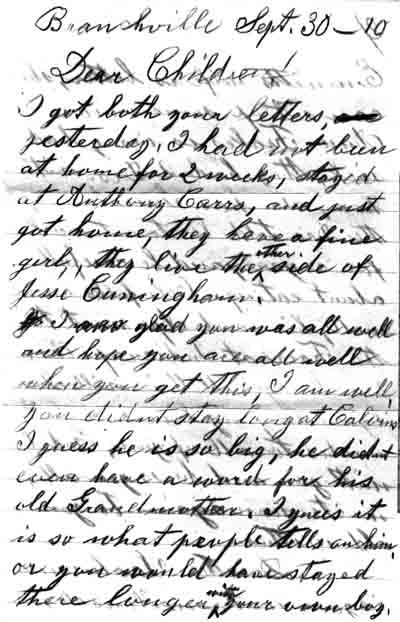 Branchville Sept. 30 – 10
Dear Children!
I got both your letters,
yesterday, I had not bin
at home for 2 weeks, stayed
at Anthony Carrs, and just
got home, they have a fine
girl, they live the other side of
Jesse Cuningham.
I am glad you was all well
and hope you are all well
when you get this, I am well,
you didnt stay long at Calvins
I guess he is so big, he didnt
even have a word for his
old Grandmother. I guess it
is so what people tells on him,
or you would have stayed
there longer with your own boy.